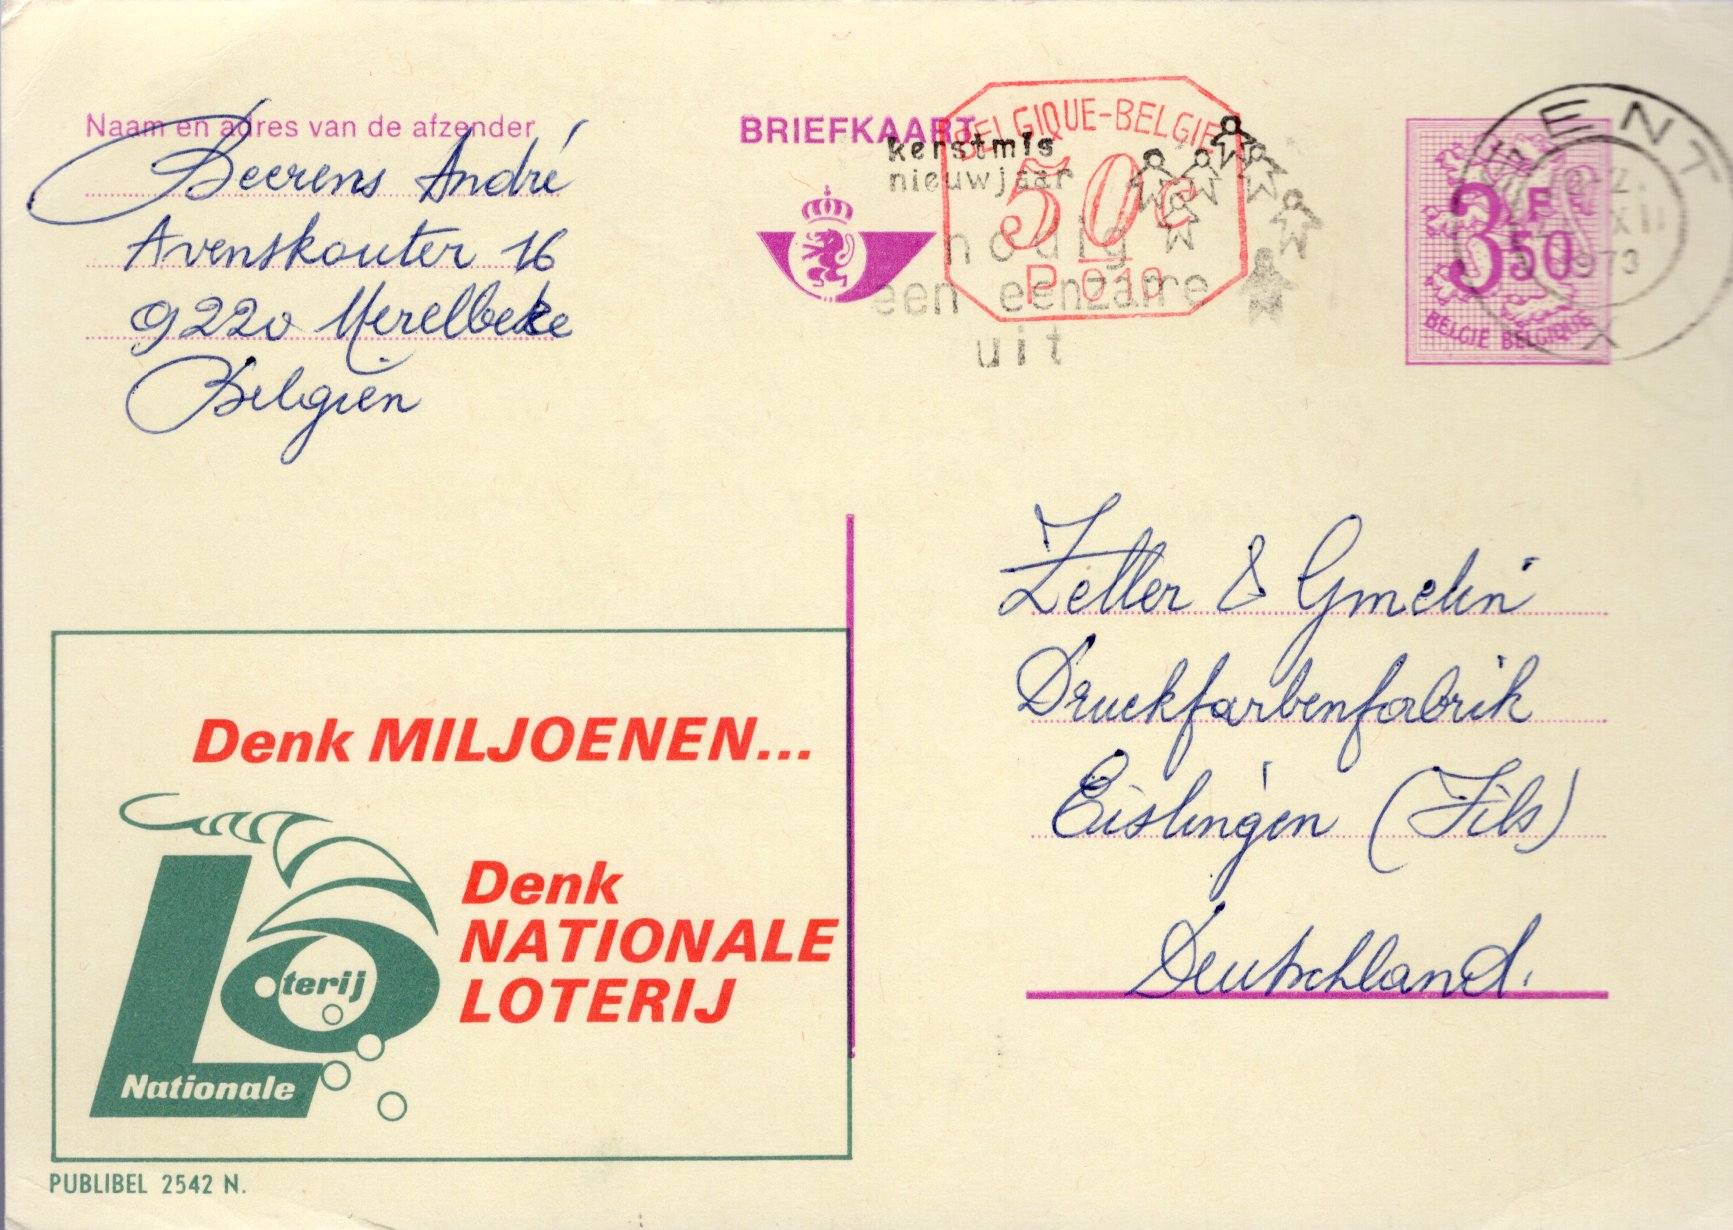 Naam en adres van de afzender
Beerens André
Avenskouter 16
9220 Merelbeke
Belgien
BRIEFKAART
BELGIQUE-BELGIE
50c
P 010
kerstmis
nieuwjaar
nodig
een eenzame
uit
3F
50
BELGIE BELGIQUE
GENT
XII
1973
X
Zeller & Gmelin
Druckfarbenfabrik
Eislingen (Fils)
Deutschland.
Denk MILJOENEN...
Denk
NATIONALE
LOTERIJ
Loterij
Nationale
PUBLIBEL 2542 N.